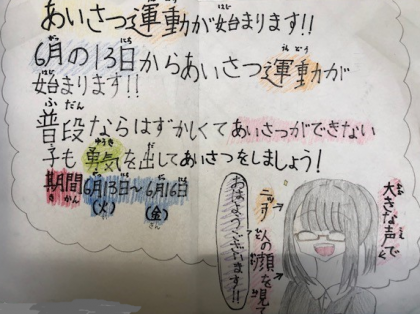 あいさつ運動が始まります!!
6月の13日からあいさつ運動が
始まります!!
普段ならはずかしくてあいさつができない
子も勇気を出してあいさつをしましょう!
期間6月13日～6月16日
(火) (金)
おはようございます!!
大きな声で
人の顔を見て